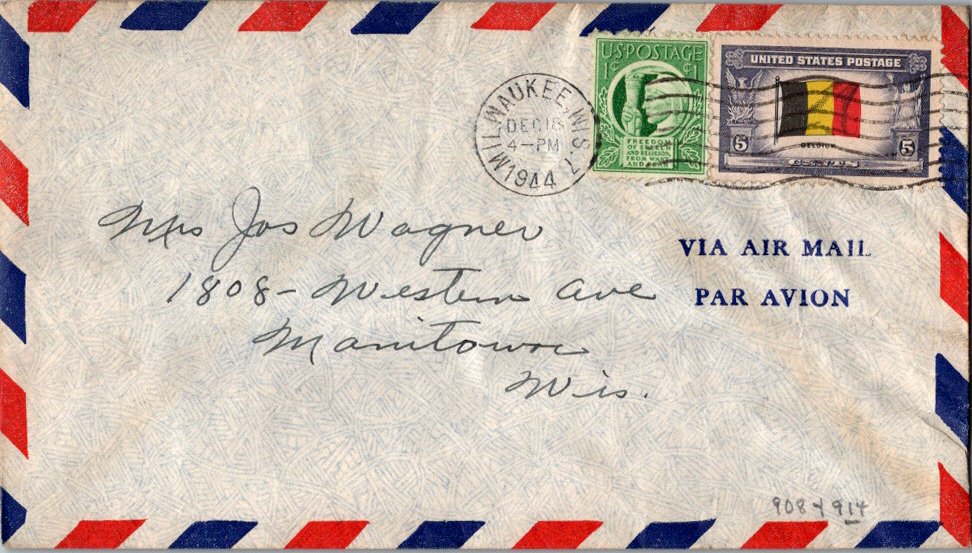 U.S. POSTAGE
1¢ ¢1
FREEDOM
OF SPEECH
AND RELIGION,
FROM WANT
AND
UNITED STATES POSTAGE
BELGIUM
5 5
MILWAUKEE, WIS. 7
DEC 18
4-PM
1944
Mrs Jos Wagner
1808- Western Ave
Manitowoc
Wis.
VIA AIR MAIL
PAR AVION
908 + 914